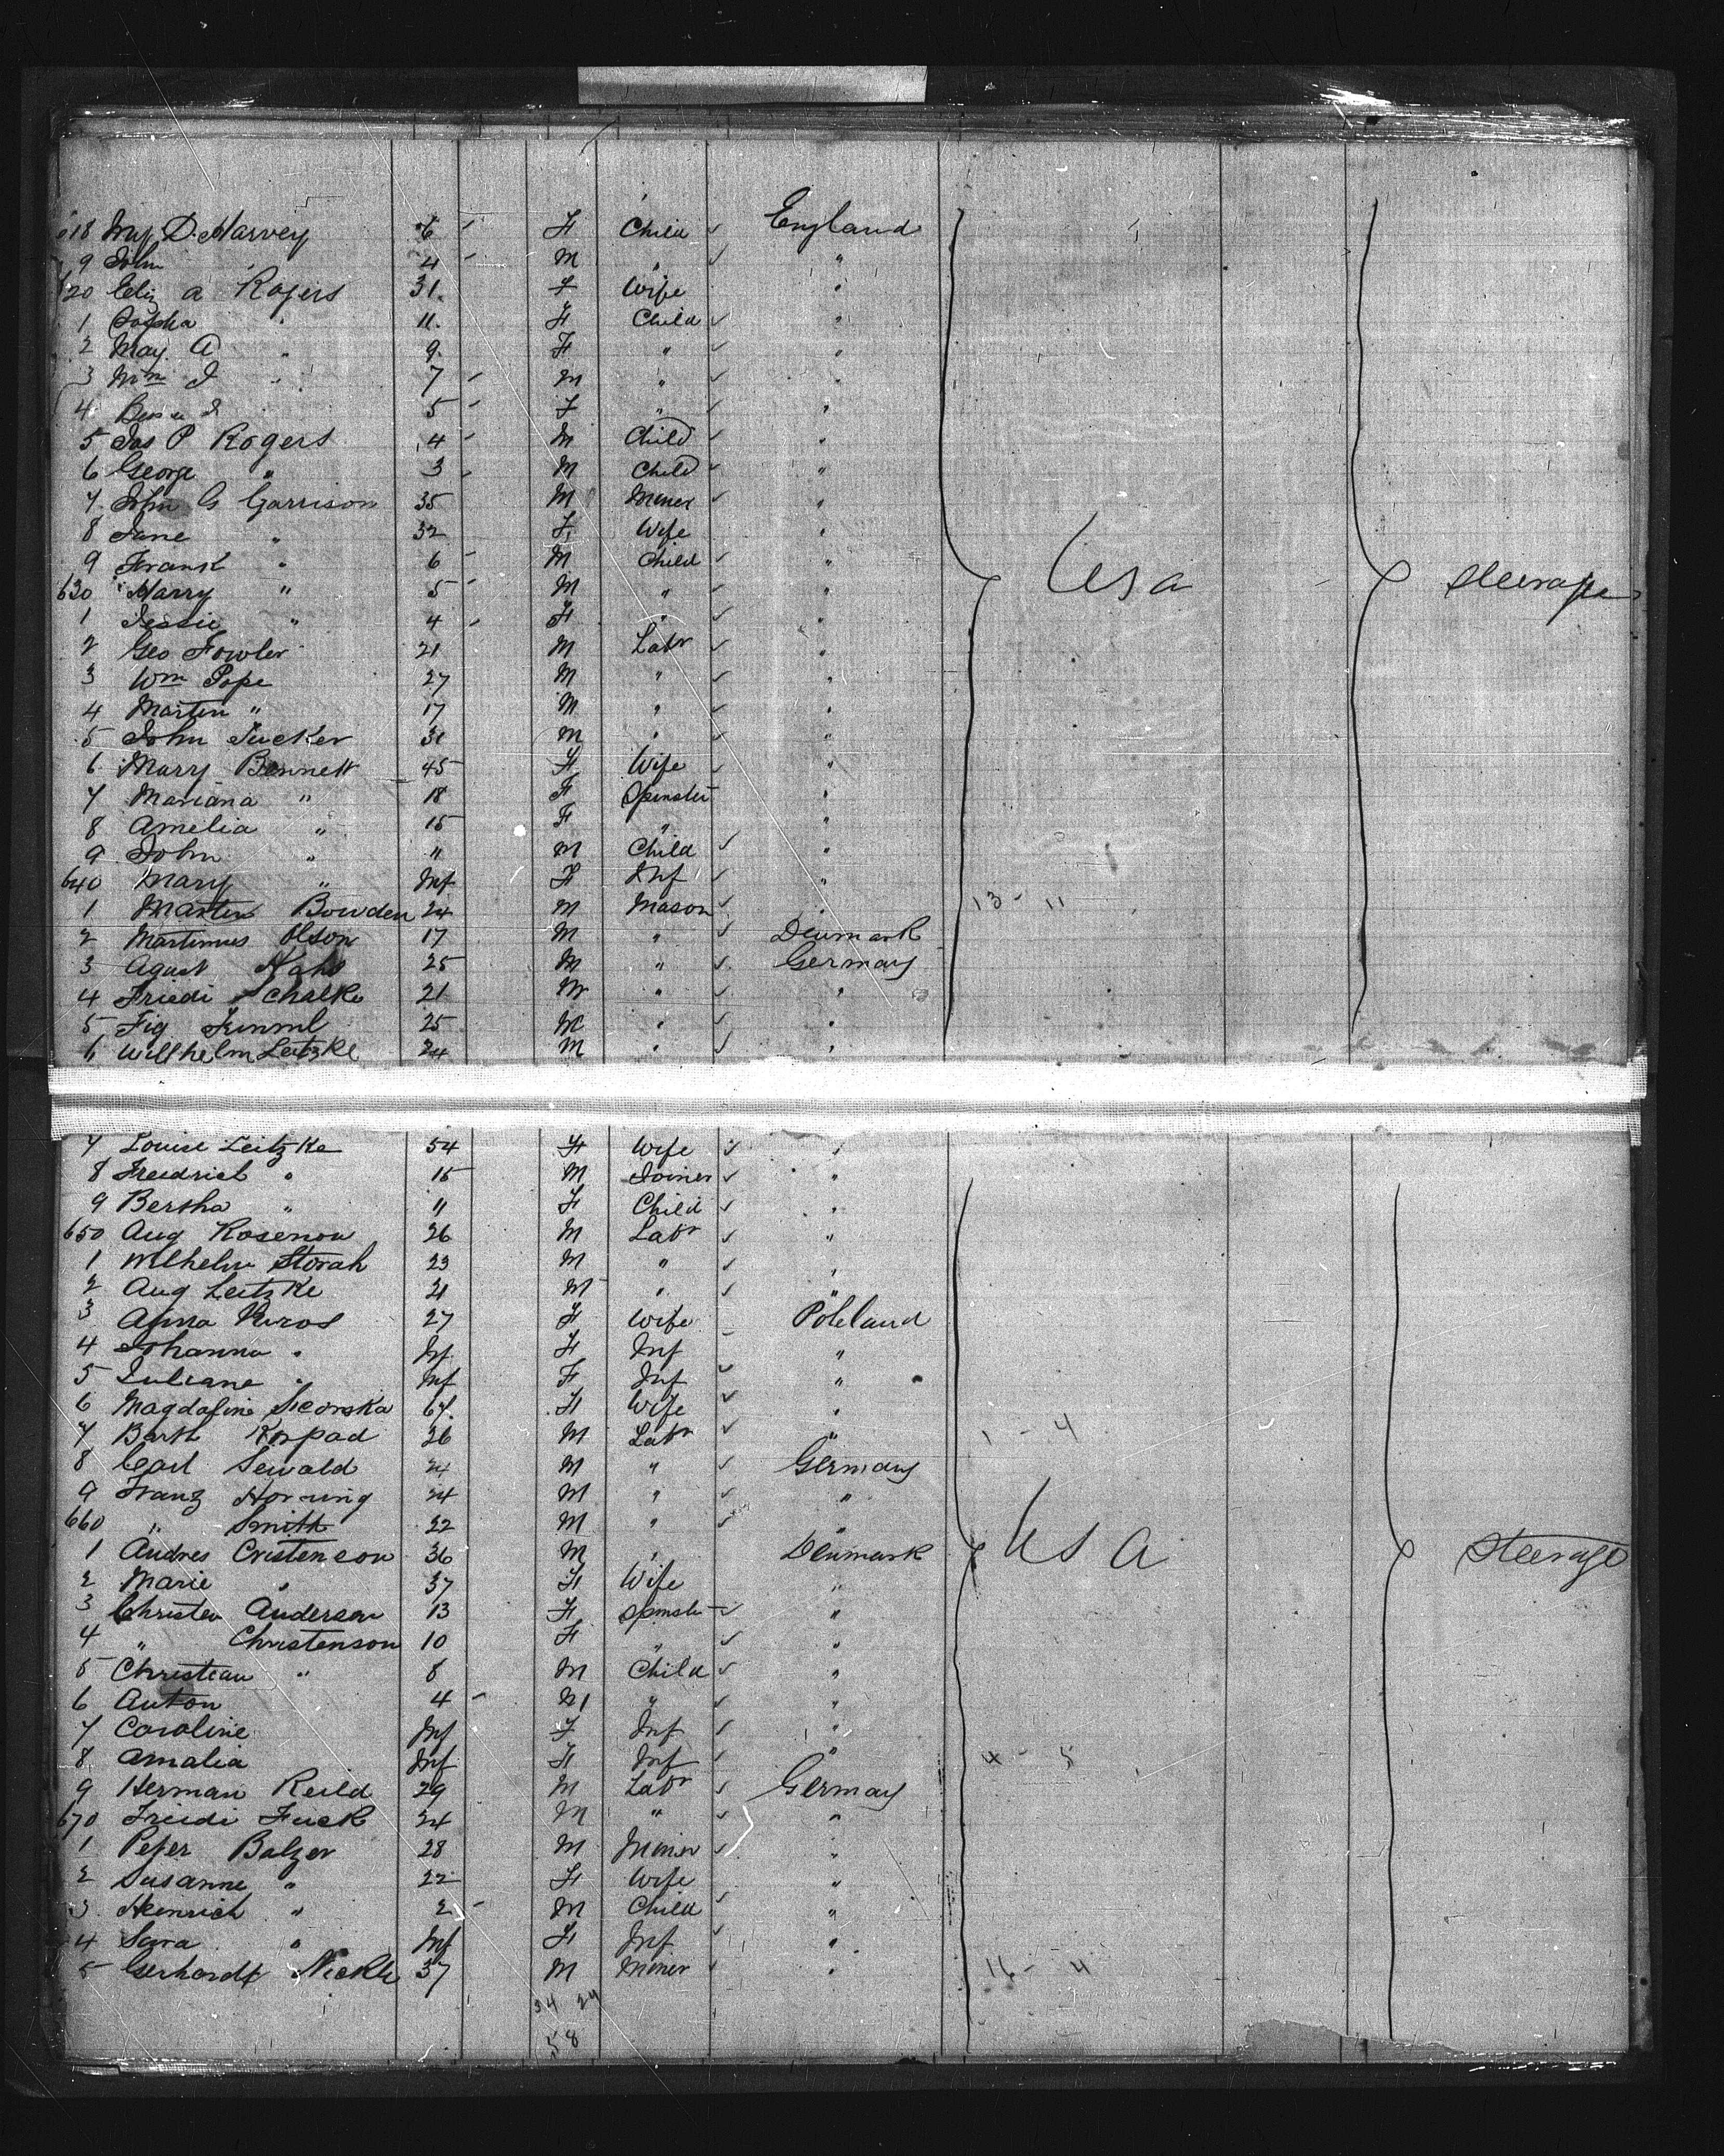 618 D. Harvey 6 F Child England
9 John 4 M " "
620 Eliz a Rogers 31. F Wife "
1 Sopha " 11. F Child "
2 May. A " 9. F " "
3 Wm J " 7 M " "
4 5 F " "
5 Jas P Rogers 4 M Child "
6 George " 3 M Child "
7 John G Garrison 35 M Miner "
8 Jane " 32 F Wife "
9 Frank " 6 M Child " USA Steerage
630 Harry " 5 M " "
1 Jessie " 4 F " "
2 Geo Fowler 21 M Labr "
3 Wm Pope 27 M " "
4 Martin " 17 M " "
5 John Tucker 31 M " "
6 Mary Bennett 45 F Wife "
7 Mariana " 18 F Spinster "
8 Amelia " 15 F " "
9 John " 11 M Child "
640 Mary " Inf F Inf "
1 Martin Bowden 24 M Mason " 13 - 11
2 Martinus Olson 17 M " Denmark
3 Agust 25 M " Germany
4 Friedi Schalke 21 M " "
5 25 M " "
6 Willhelm Leitzke 24 M " "
7 Louise Leitzke 54 F Wife "
8 Freidrich " 15 M Joiner "
9 Bertha " 11 F Child "
650 Aug Rosenow 26 M Labr "
1 Wilhelm Storah 23 M " "
2 Aug Leitzke 21 M " "
3 Anna 27 F Wife Poleland
4 Johanna " Inf F Inf "
5 Juliane " Inf F Inf "
6 Magdaline 67. F Wife "
7 Barth 26 M Labr " 1 - 4
8 Carl Sewald 24 M " Germany
9 Franz Horning 24 M " "
660 " Smith 22 M " "
1 Andres Cristenson 36 M " Denmark USA Steerage
2 Marie " 37 F Wife "
3 Christen Anderson 13 F Spinster "
4 " Christenson 10 F " "
5 Christian " 8 M Child "
6 Anton 4 M " "
7 Caroline Inf F Inf "
8 Amalia Inf F Inf " 4 - 5
9 Herman Reild 29 M Labr Germany
670 Friedi Fuck 24 M " "
1 Peter Balzer 28 M Miner "
2 Susanne " 22 F Wife "
3 Heinrich " 2 M Child "
4 Sara " Inf F Inf "
5 Gerhardt Nickle 37 M Miner " 16 - 4
34 24
58